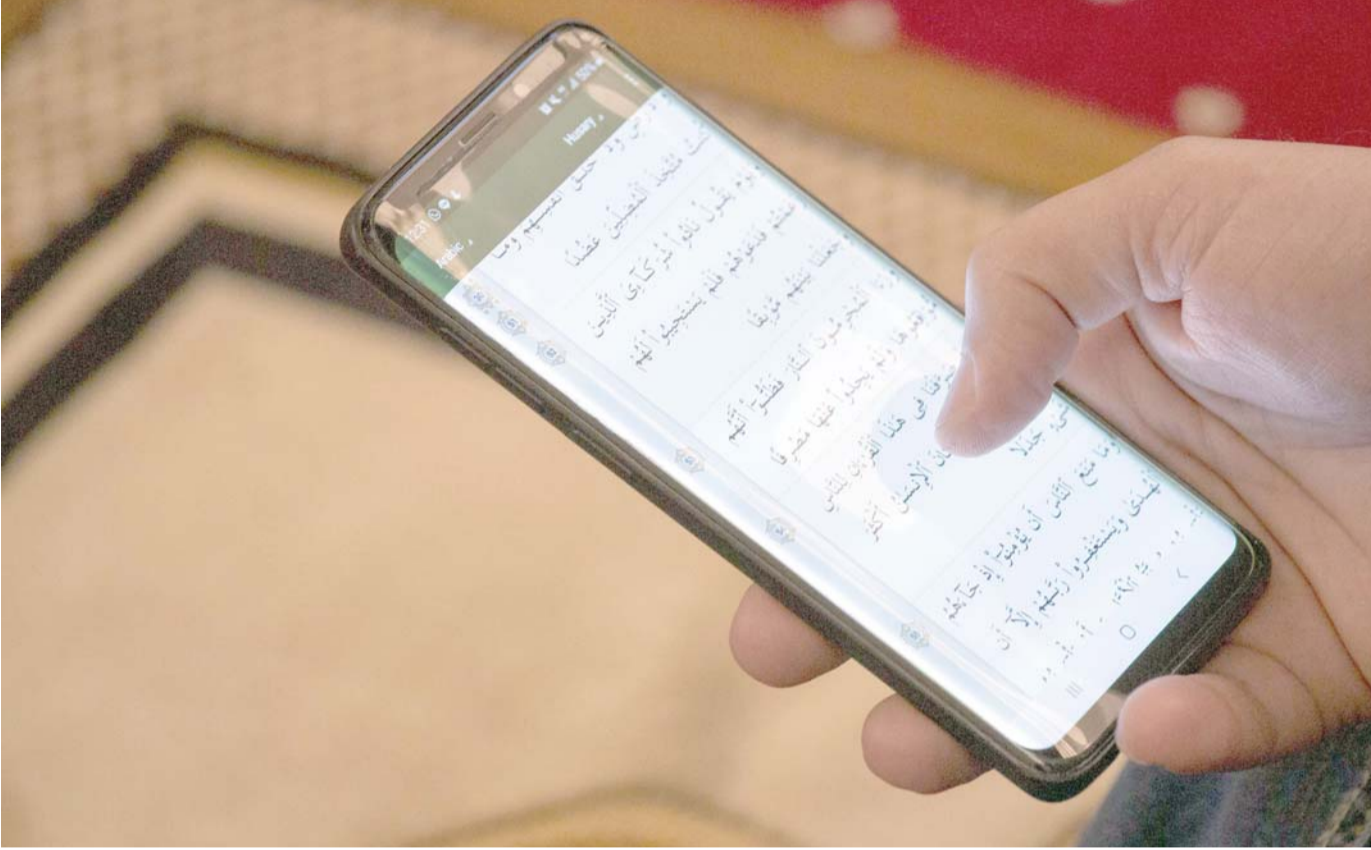 12:31
Arabic Husary
خَلْقَ أَنفُسِهِمْ وَمَا
كُنتُ مُتَّخِذَ ٱلْمُضِلِّينَ عَضُدًا
وَيَوْمَ يَقُولُ نَادُوا۟ شُرَكَآءِىَ ٱلَّذِينَ
زَعَمْتُمْ فَدَعَوْهُمْ فَلَمْ يَسْتَجِيبُوا۟ لَهُمْ
وَجَعَلْنَا بَيْنَهُم مَّوْبِقًا
ٱلْمُجْرِمُونَ ٱلنَّارَ فَظَنُّوٓا۟ أَنَّهُم
مُّوَاقِعُوهَا وَلَمْ يَجِدُوا۟ عَنْهَا مَصْرِفًا
صَرَّفْنَا فِى هَٰذَا ٱلْقُرْءَانِ لِلنَّاسِ
ٱلْإِنسَٰنُ أَكْثَرَ
شَىْءٍ جَدَلًا
وَمَا مَنَعَ ٱلنَّاسَ أَن يُؤْمِنُوٓا۟ إِذْ جَآءَهُمُ
ٱلْهُدَىٰ وَيَسْتَغْفِرُوا۟ رَبَّهُمْ إِلَّآ أَن